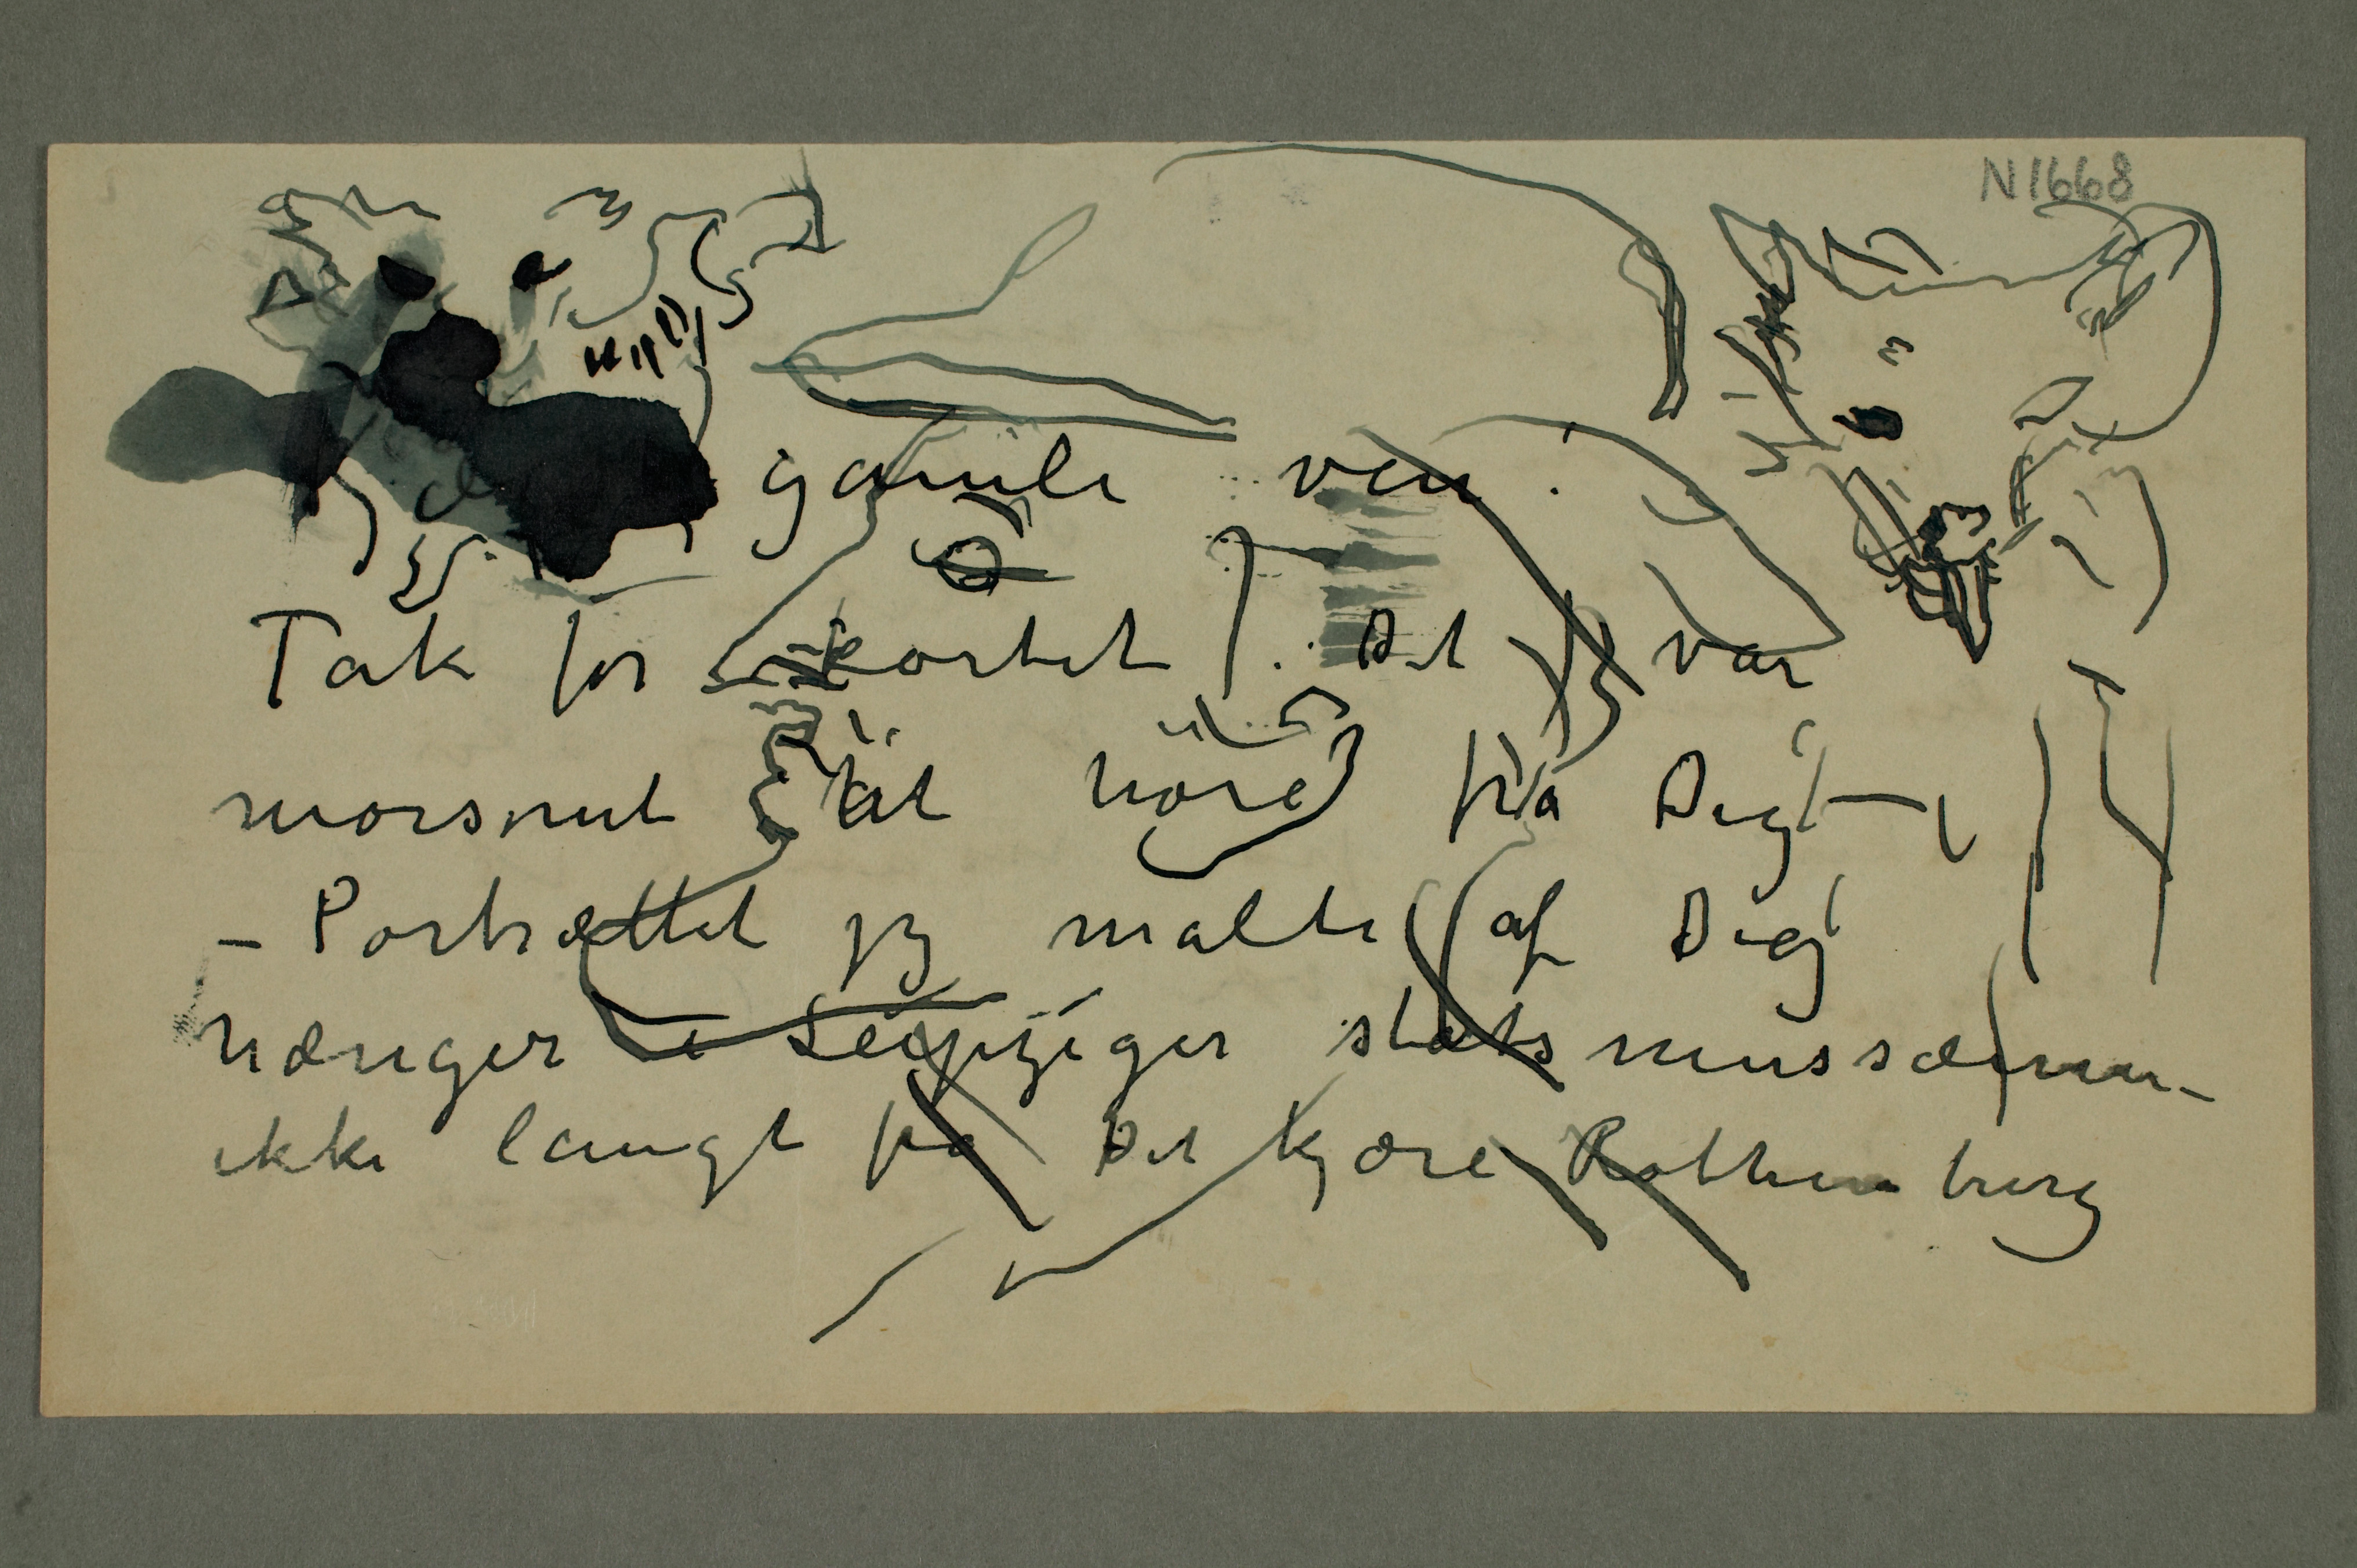 N1668
gamle ven.
Tak for kortet. Det var
morsomt at høre fra Dig –
– Portrættet jeg malte af Dig
hænger i Leipziger statsmussæum –
ikke langt fra det kjære Rothenburg